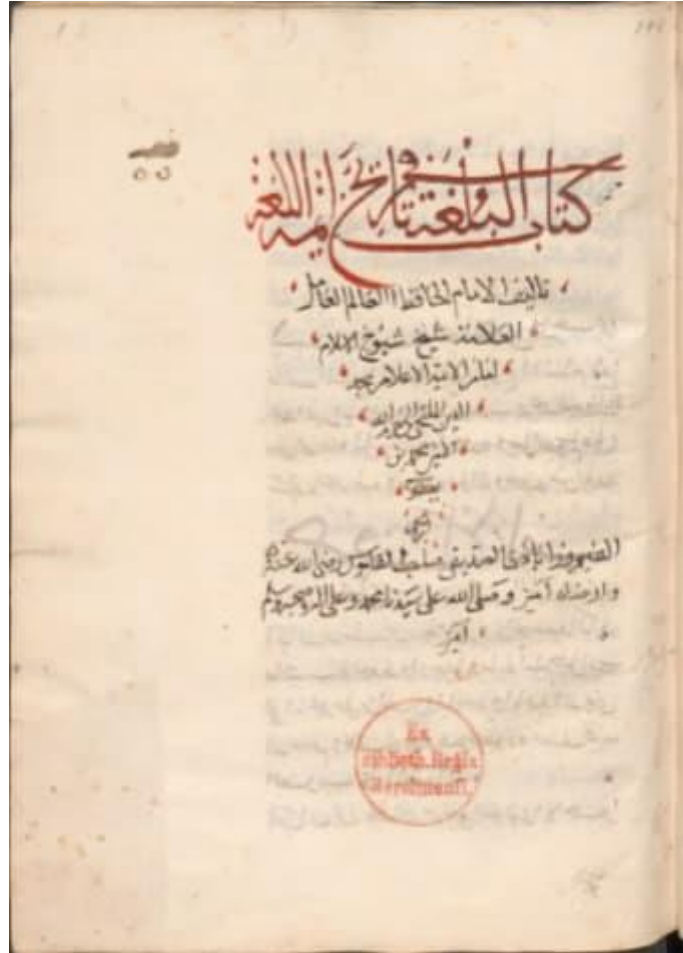 كتاب البلغة في تاريخ ايمة اللغة
تاليف الامام الحافظ العالم العامل
العلامة شيخ شيوخ الاسلام
الايمة الاعلام مجد
الدين
محمد بن
يعقوب
الفيروزابادى الصديقى صاحب القاموس رضى الله عنه
وارضاه آمين وصلى الله على سيدنا محمد وعلى اله وصحبه وسلم
آمين
Ex
Biblioth. Regia
Berolinensi.